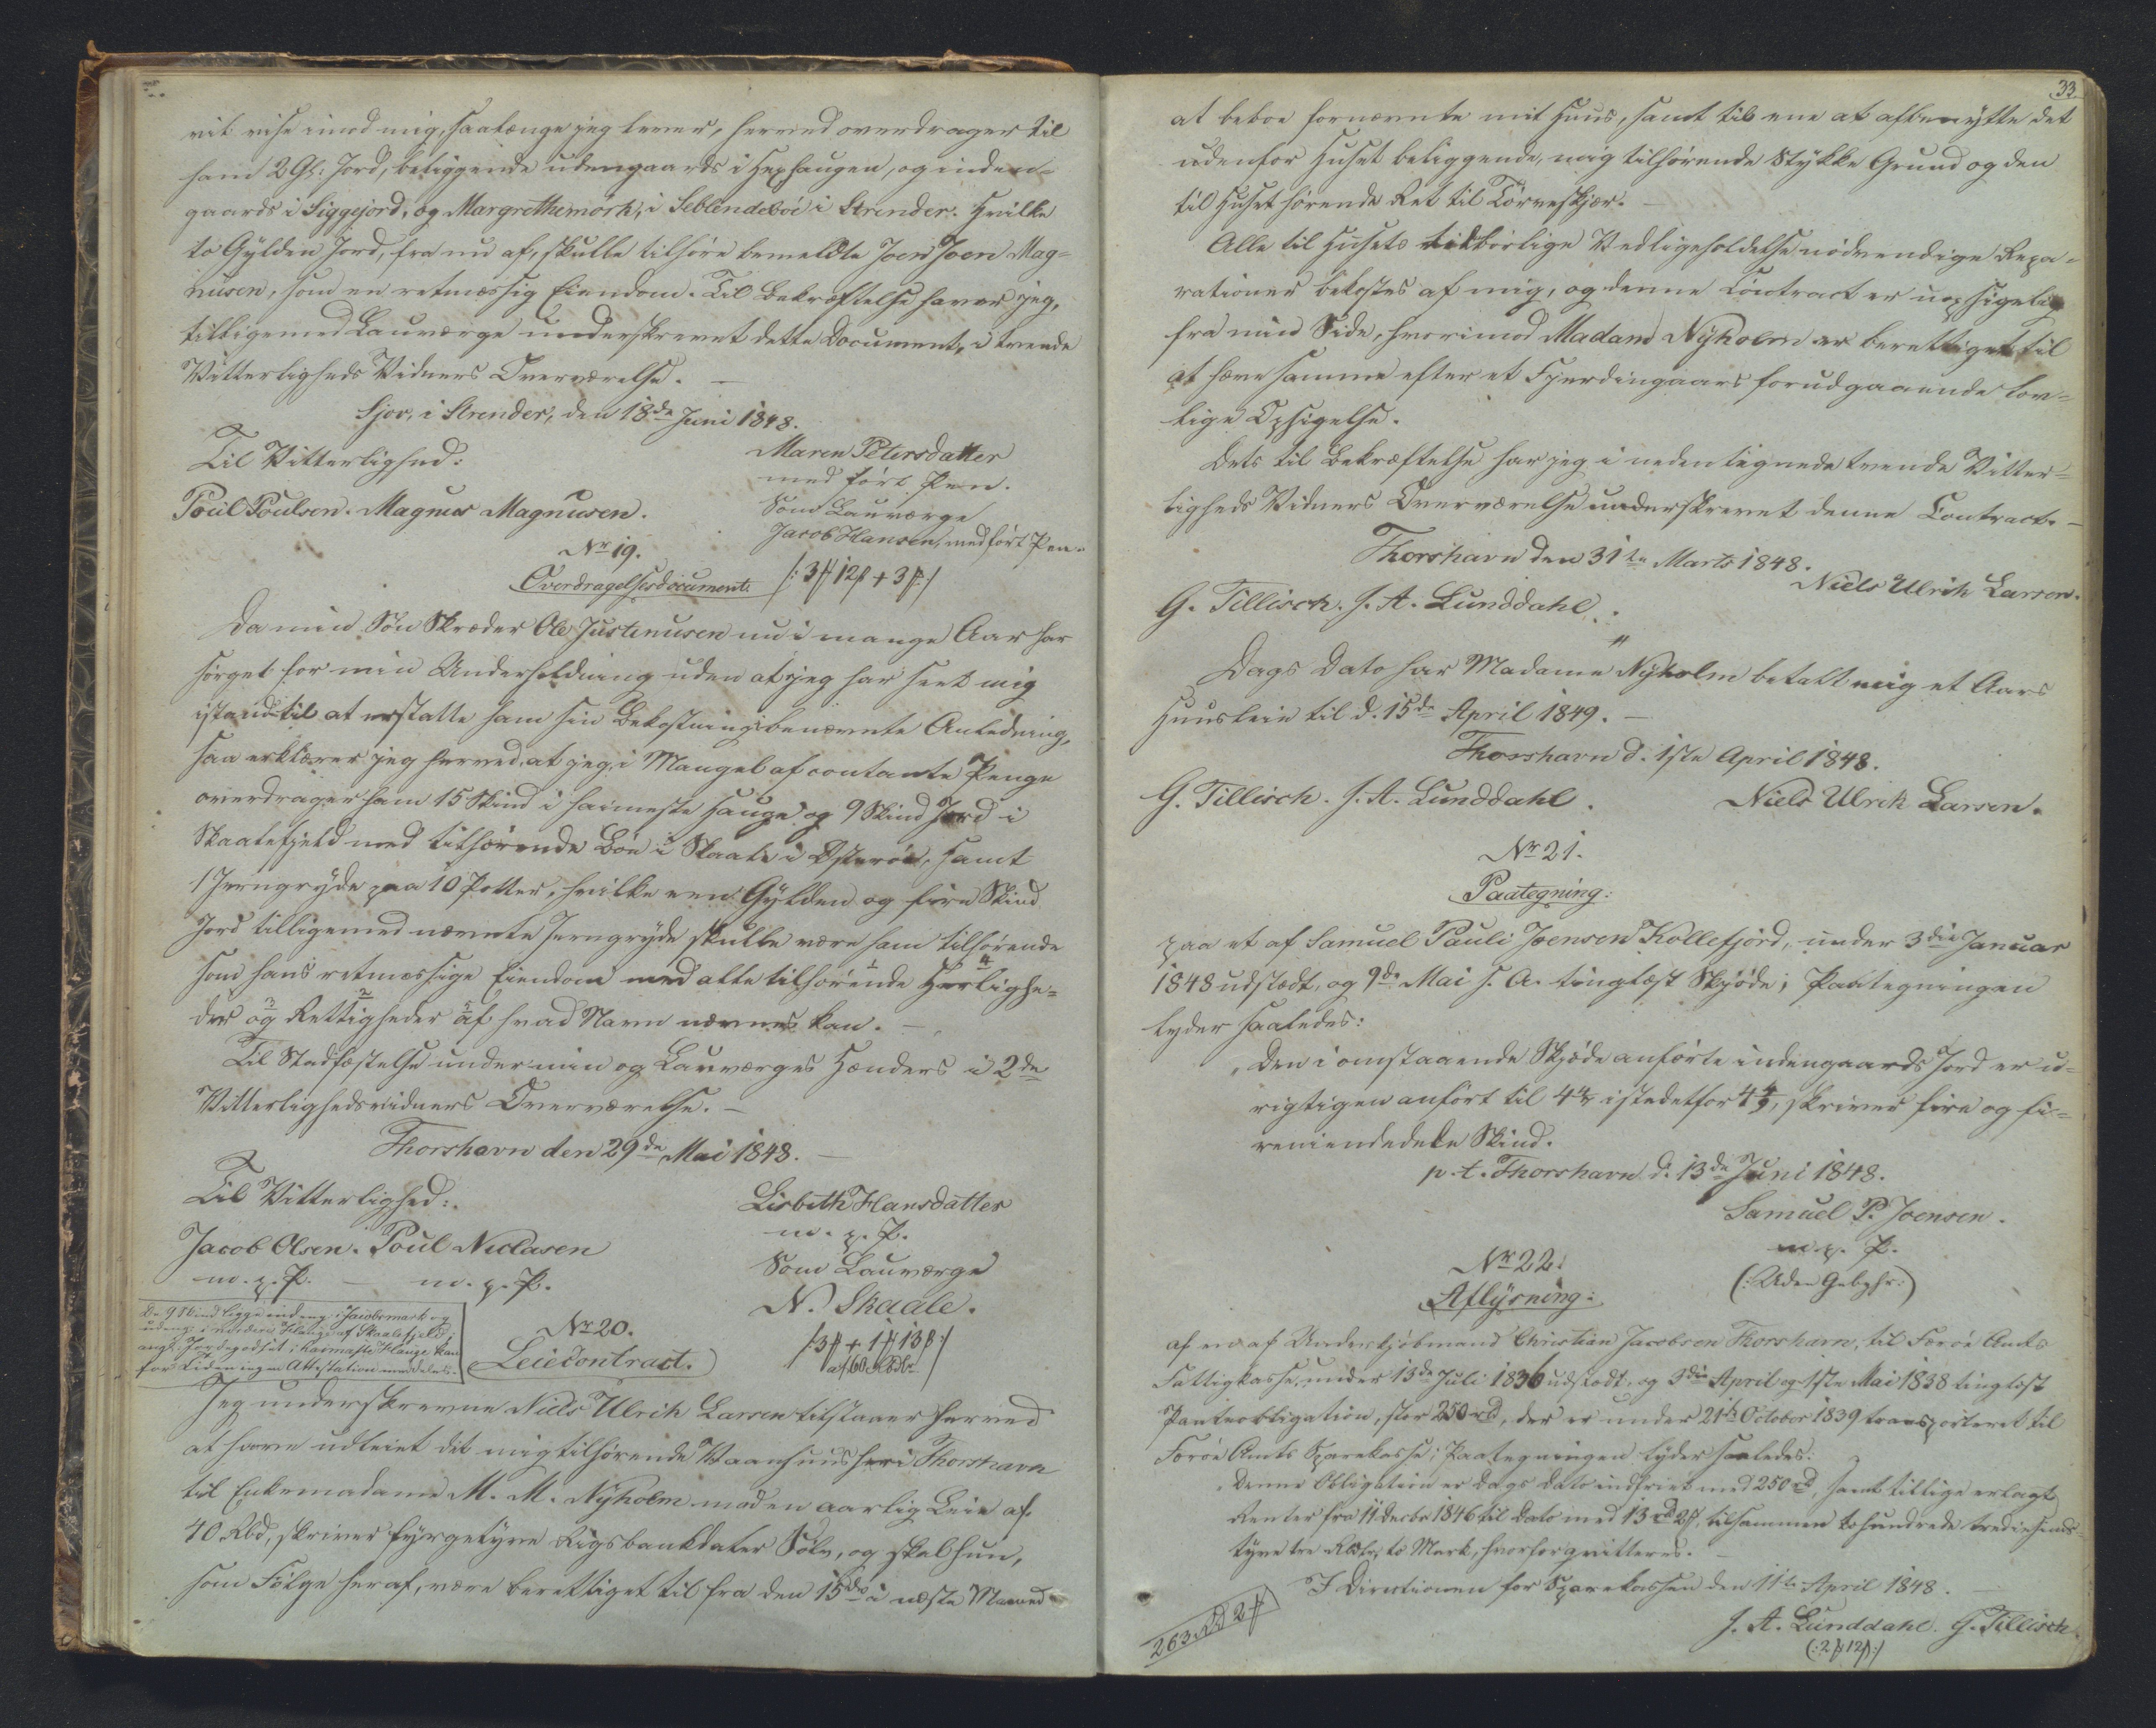 vit vise imod mig, saalænge jeg lever, herved overdrager til
ham 2 Gl: Jord, beliggende udengaards i Heyhaugen, og inden-
gaards i Siggejord, og Margrethemørk, i Seblendeböe i Strender. Hvilke
to Gylden Jord, fra nu af, skulle tilhøre bemeldte Joen Joen Mag-
nusen, som en retmæssig Eiendom. Til Bekræftelse haver jeg,
tilligemed Lauværge underskrevet dette Document, i tvende
Vitterligheds Vidners Overværelse. –
Sjov, i Strender, den 18de Juni 1848.
Til Vitterlighed:
Poul Poulsen. Magnus Magnusen.
Maren Petersdatter
med ført Pen.
Som Lauværge
Jacob Hansen, med ført Pen.
Nr 19.
Overdragelsesdocument. /: 3 ₰ 12 β + 3 β :/
Da min Søn Skræder Ole Justinusen nu i mange Aar har
sørget for min Underholdning uden at jeg har seet mig
istand til at erstatte ham sin Bekostning i benævnte Anledning,
saa erklærer jeg herved, at jeg, i Mangel af contante Penge
overdrager ham 15 Skind i Harmeste Hauge og 9 Skind Jord i
Skaalefjeld med tilhørende Böe i Skaale i Österöe, samt
1 Jerngryde paa 10 Potter, hvilke een Gylden og fire Skind
Jord tilligemed nævnte Jerngryde skulle være ham tilhørende
som hans retmæssige Eiendom med alle tilhørende Herlighe-
der og Rettigheder af hvad Navn nævnes kan. –
Til Stadfæstelse under min og Lauværges Hænders i 2de
Vitterlighedsvidners Overværelse. –
Thorshavn den 29de Mai 1848. –
Til Vitterlighed:
Jacob Olsen. Poul Niclasen
m. p. P. – m. p. P.
Lisbeth Hansdatter
m. p. P.
Som Lauværge
N. Skaale.
De 9 Skind ligge indeng. i Jacobsmark og
udeng. i nordere Hauge af Skaalefjeld;
angl. Jordegodset i Harmeste Hauge kan
for Tiden ingen Attestation meddeles.
Nr 20.
Leiecontract.
/: 3 ₰ + 1 ₰ 13 β :/
af 60 Rbdlr
Jeg underskrevne Niels Ulrik Larsen tilstaaer herved
at have udleiet dit mig tilhørende Vaanhuus her i Thorshavn
til Enkemadame M. M. Nyholm mod en aarlig Leie af
40 Rbd, skriver fyrgetyve Rigsbankdaler Sølv, og skal hun,
som Følge heraf, være berettiget til fra den 15de i næste Maaned
33
at beboe fornævnte mit Huus, samt til ene at afbenytte det
udenfor Huset beliggende, mig tilhørende Stykke Grund og den
til Huset hørende Ret til Törveskjær. –
Alle til Husets tilbörlige Vedligeholdelse nødvendige Repa-
rationer bekostes af mig, og denne Contract er uopsigelig
fra min Side, hvorimod Madam Nyholm er berettiget til
at hæve samme efter et Fjerdingaars forudgaaende lov-
lige Opsigelse.
Dets til Bekræftelse har jeg i nedentegnede tvende Vitter-
ligheds Vidners Overværelse underskrevet denne Contract. –
Thorshavn den 31te Marts 1848.
Niels Ulrik Larsen.
G. Tillisch. J. A. Lunddahl.
Dags Dato har Madame Nyholm betalt mig et Aars
Huusleie til d. 15de April 1849. –
Thorshavn d. 1ste April 1848.
G. Tillisch. J. A. Lunddahl. Niels Ulrik Larsen.
Nr 21.
Paategning:
paa et af Samuel Pauli Joensen Kollefjord, under 3die Januar
1848 udstædt, og 9de Mai s. A. tinglæst Skjöde; Paategningen
lyder saaledes:
„Den i omstaaende Skjøde anførte indengaards Jord er u-
rigtigen anført til 4 4/7 istedetfor 4 4/9, skriver fire og fi-
reniendedele Skind.
p. t. Thorshavn d. 13de Juni 1848.
Samuel P. Joensen.
m. p. P.
(: Uden Gebyhr :)
Nr 22.
Aflysning:
af en af Underkjøbmand Christian Jacobsen Thorshavn, til Færöe Amts
Fattigkasse, under 13de Juli 1836 udstædt, og 3die April og 1ste Mai 1838 tinglæst
Panteobligation, stor 250 rd, der er under 21de October 1839 transporteret til
Færöe Amts Sparekasse; Paategningen lyder saaledes:
„Denne Obligation er Dags Dato indfriet med 250 rd, samt tillige erlagt
Renter fra 11 Decbr 1846 til Dato med 13 rd 2 ₰, tilsammen tohundrede tredsinds-
tyve tre Rbdlr, to Mark, hvorfor qvitteres. –
I Directionen for Sparekassen den 11te April 1848. –
263 rd 2 ₰
J. A. Lunddahl. G. Tillisch.
(: 2 ₰ 12 β :)